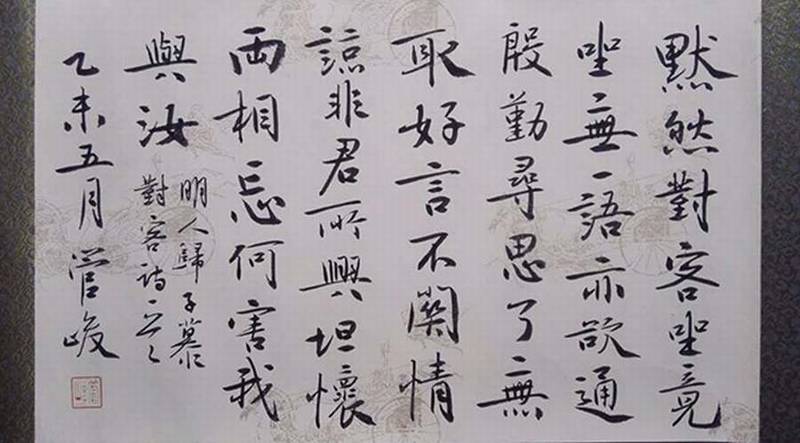 默然對客坐竟
坐無一語亦欲通
殷勤尋思了無
取好言不關情
諒非君所與坦懷
兩相忘何害我
與汝
明人歸子慕
對客詩
乙未五月管峻